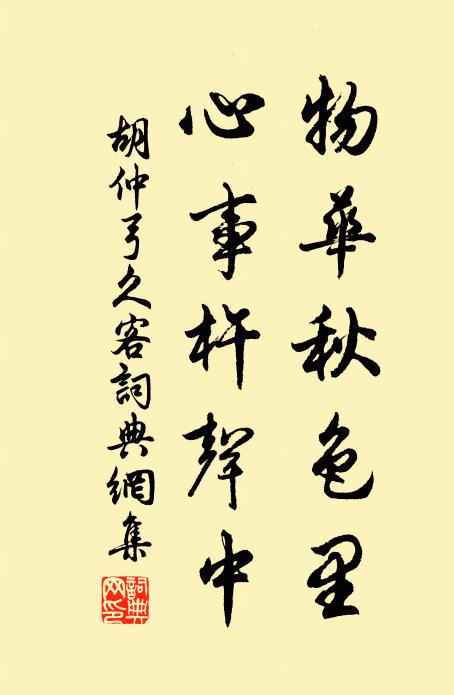 物華秋色里
心事杵聲中
胡仲弓久客詞典網集
詞典網印